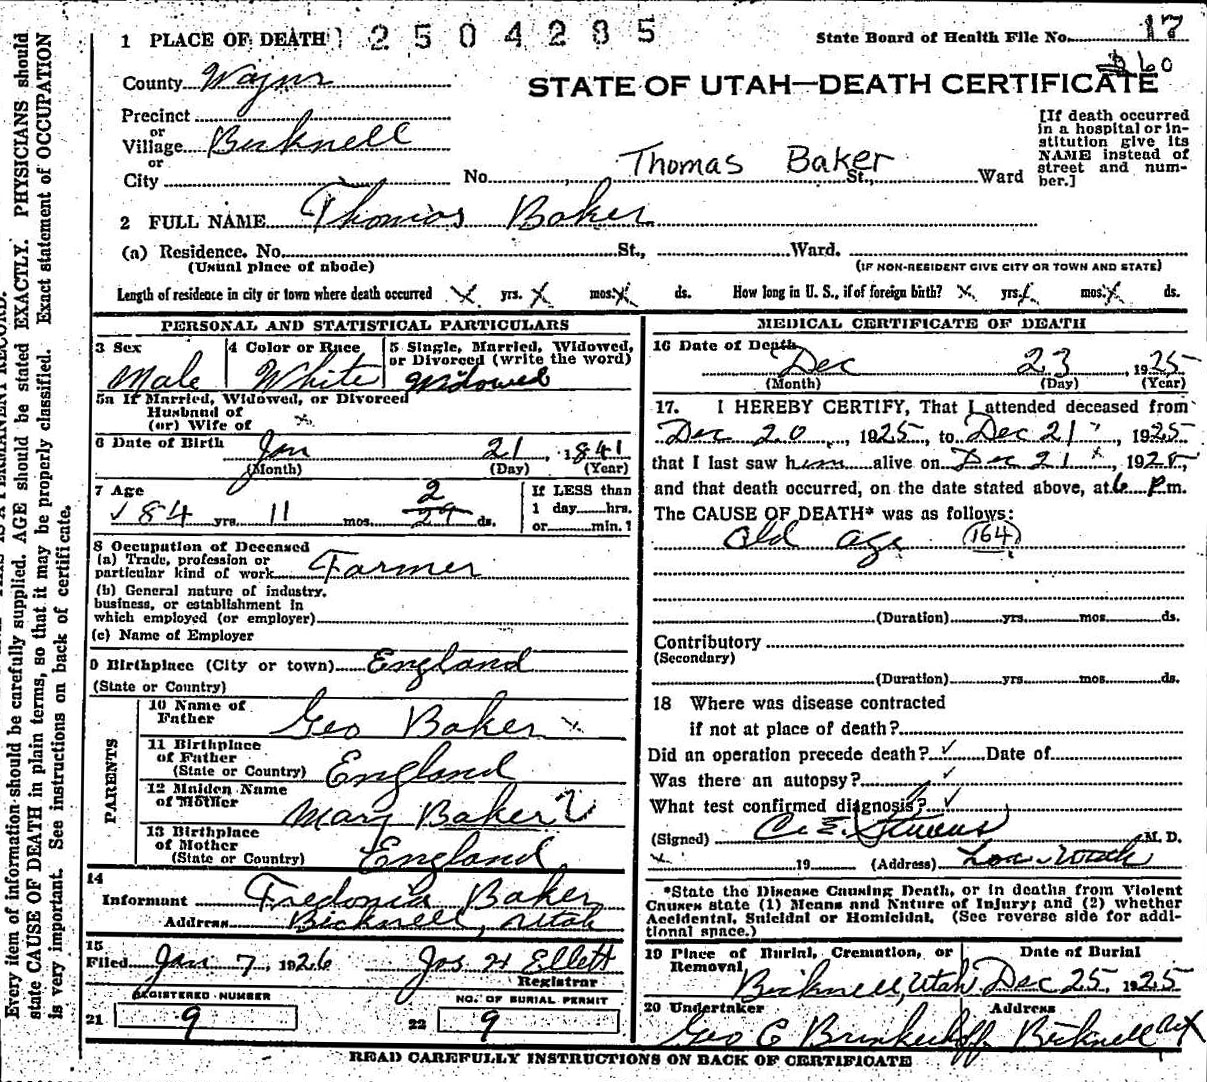 1 PLACE OF DEATH 2504285
State Board of Health File No. 17
60
County Wayne
STATE OF UTAH—DEATH CERTIFICATE
Precinct
or
Village Bicknell
or
City
No. St., Ward
Thomas Baker
[If death occurred
in a hospital or in-
stitution give its
NAME instead of
street and num-
ber.]
2 FULL NAME Thomas Baker
(a) Residence. No. St., Ward.
(Usual place of abode)
(IF NON-RESIDENT GIVE CITY OR TOWN AND STATE)
Length of residence in city or town where death occurred x yrs. x mos. x ds. How long in U. S., if of foreign birth? x yrs. x mos. x ds.
PERSONAL AND STATISTICAL PARTICULARS
3 Sex
Male
4 Color or Race
White
5 Single, Married, Widowed,
or Divorced (write the word)
Widowed
5a If Married, Widowed, or Divorced
Husband of
(or) Wife of x
6 Date of Birth Jan 21, 1841
(Month) (Day) (Year)
7 Age
84 yrs. 11 mos. 2 29 ds.
If LESS than
1 day hrs.
or min. ?
8 Occupation of Deceased
(a) Trade, profession or
particular kind of work Farmer
(b) General nature of industry,
business, or establishment in
which employed (or employer)
(c) Name of Employer
9 Birthplace (City or town) England
(State or Country)
PARENTS
10 Name of
Father Geo Baker x
11 Birthplace
of Father
(State or Country) England
12 Maiden Name
of Mother Mary Baker ?
13 Birthplace
of Mother
(State or Country) England
14
Informant Fredonia Baker
Address Bicknell, Utah
15
Filed Jan 7, 1926 Jos H Ellett
Registrar
REGISTERED NUMBER
21 9
NO. OF BURIAL PERMIT
22 9
MEDICAL CERTIFICATE OF DEATH
16 Date of Death
Dec 23, 1925
(Month) (Day) (Year)
17. I HEREBY CERTIFY, That I attended deceased from
Dec 20, 1925, to Dec 21, 1925
that I last saw him alive on Dec 21, 1925,
and that death occurred, on the date stated above, at 6 P.m.
The CAUSE OF DEATH* was as follows:
Old age 164
(Duration) yrs. mos. ds.
Contributory
(Secondary)
(Duration) yrs. mos. ds.
18 Where was disease contracted
if not at place of death?
Did an operation precede death? ✓ Date of
Was there an autopsy? ✓
What test confirmed diagnosis? ✓
(Signed) M. D.
x 19 (Address) Loa Utah
*State the Disease Causing Death, or in deaths from Violent
Causes state (1) Means and Nature of Injury; and (2) whether
Accidental, Suicidal or Homicidal. (See reverse side for addi-
tional space.)
19 Place of Burial, Cremation, or
Removal
Bicknell, Utah
Date of Burial
Dec 25, 1925
20 Undertaker
Geo C Brinkerhoff
Address
Bicknell
READ CAREFULLY INSTRUCTIONS ON BACK OF CERTIFICATE
Every item of information should be carefully supplied. AGE should be stated EXACTLY. PHYSICIANS should
state CAUSE OF DEATH in plain terms, so that it may be properly classified. Exact statement of OCCUPATION
is very important. See instructions on back of certificate.